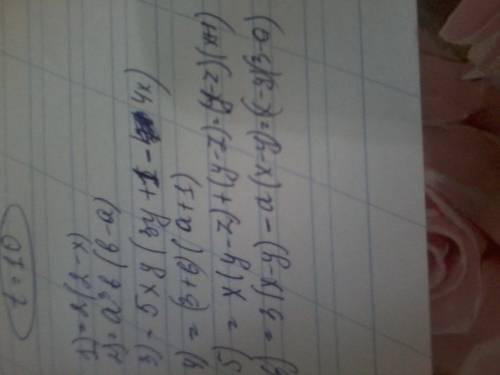 t=10
1) = x(2-x)
2) = a²b(b-a)
3) = 5xy(3y+1-4x)
4) = (3+b)(a+1)
5) = x(y-z)+(y-z)=(y-z)(x+1)
6) = 3(x-y)-a(x-y)=(x-y)(3-a)